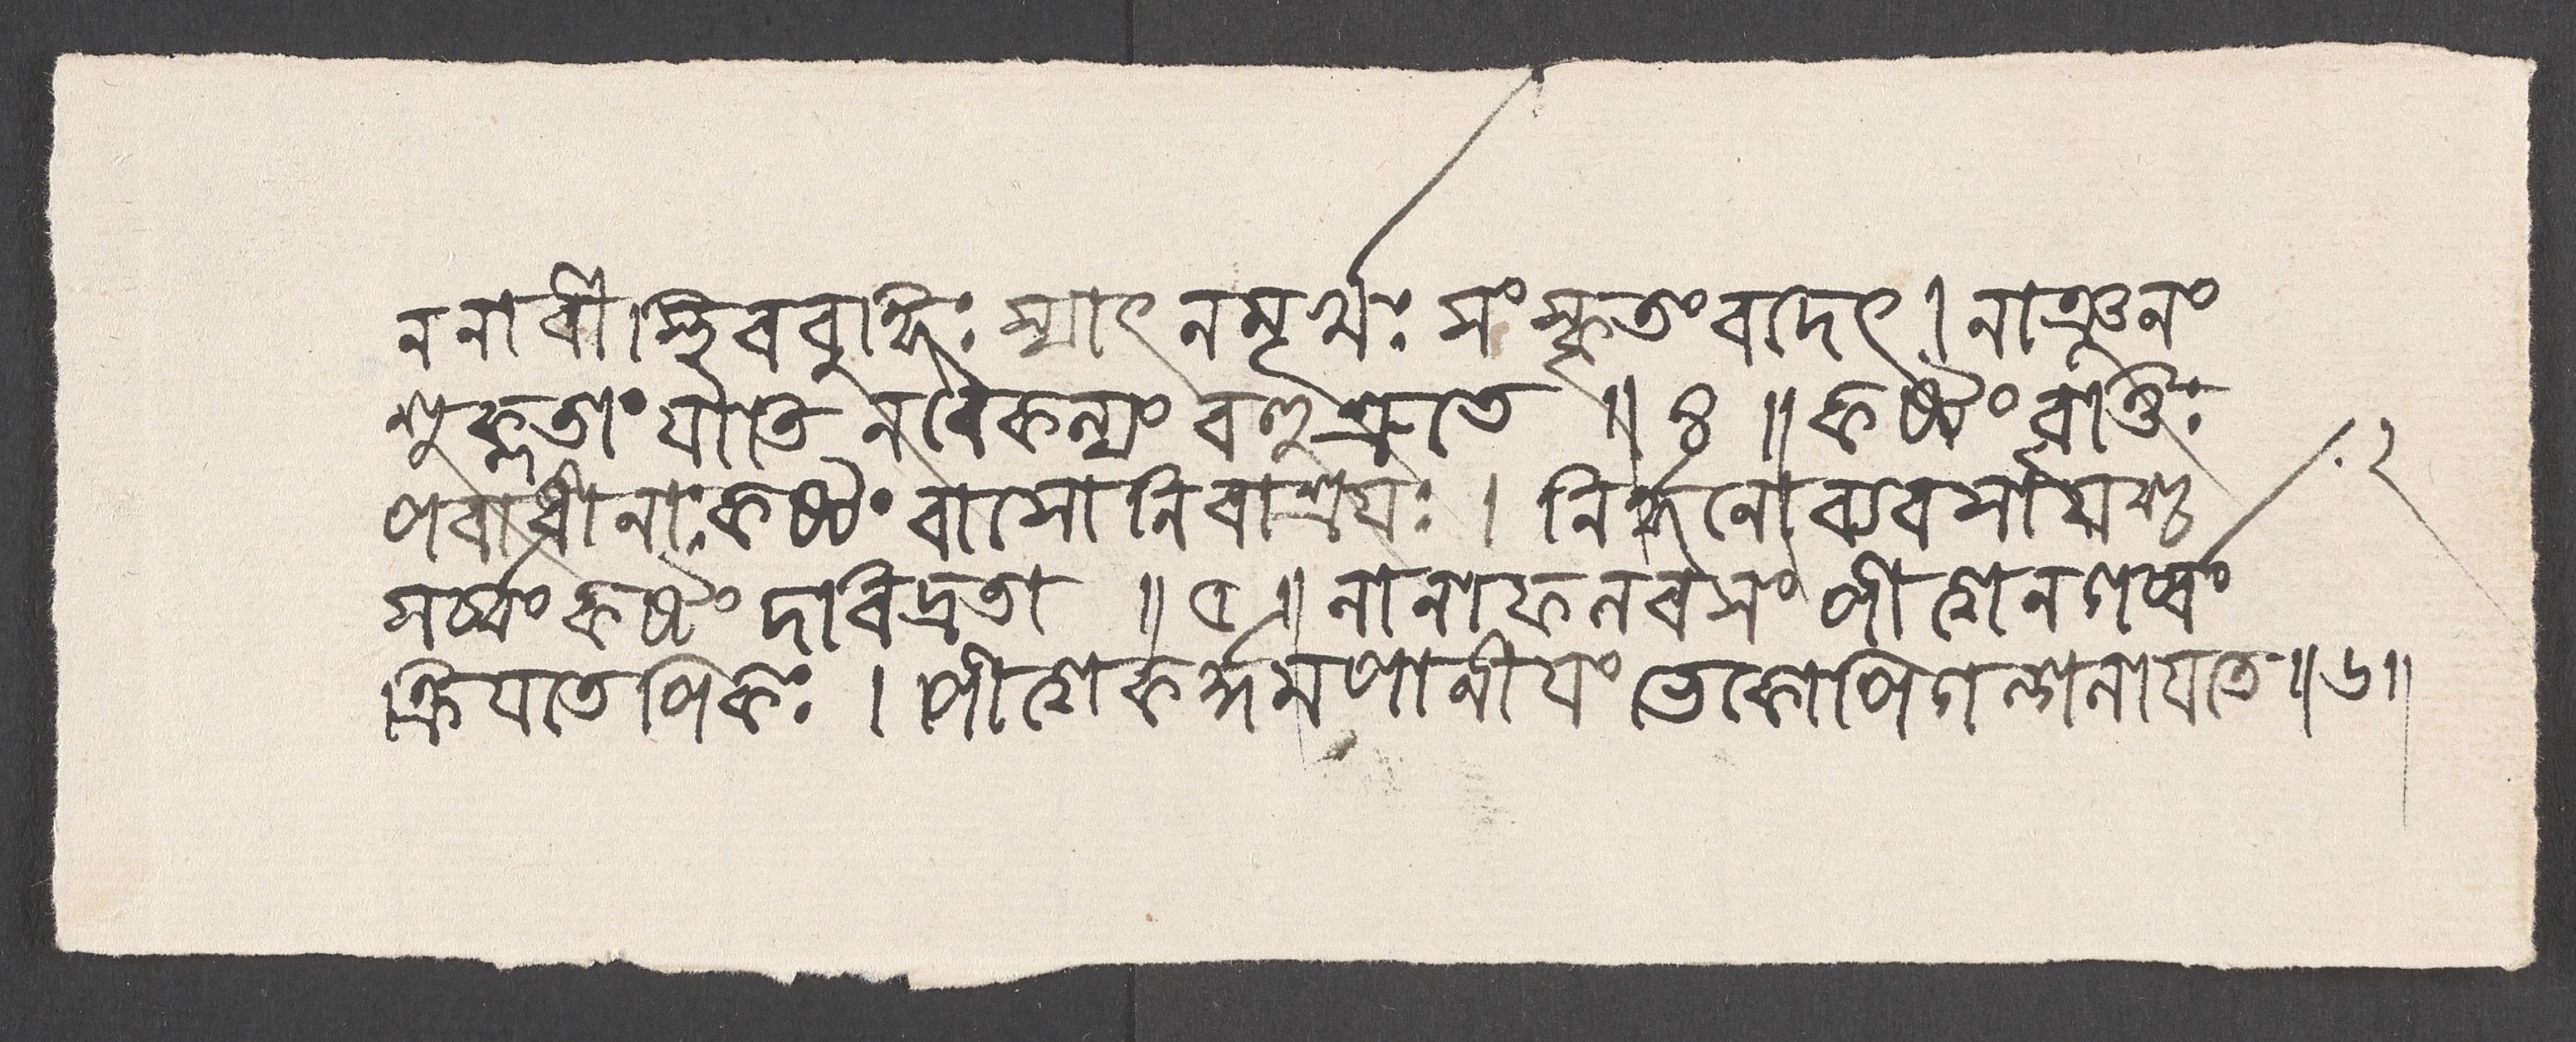 ন নারী স্থিরবুদ্ধিঃ স্যাৎ ন মূর্খঃ সংস্কৃতং বদেৎ । নাঞ্জনং
শুক্লতাং যাতি ন বৈকল্যং বহুশ্রুতে ॥ ৪ ॥ কষ্টং বৃত্তিঃ
পরাধীনাঃ কষ্টং বাসো নিরাশ্রয়ঃ । নির্দ্ধনো ব্যবসায়শ্চ
সর্ব্বং কষ্টং দারিদ্রতা ॥ ৫ ॥ নানাফলরসং পীত্বা ন গর্ব্বং
ক্রিয়তে পিকঃ । পীত্বা কর্দ্দমপানীয়ং ভেকোপি গল্গলায়তে ॥ ৬ ॥